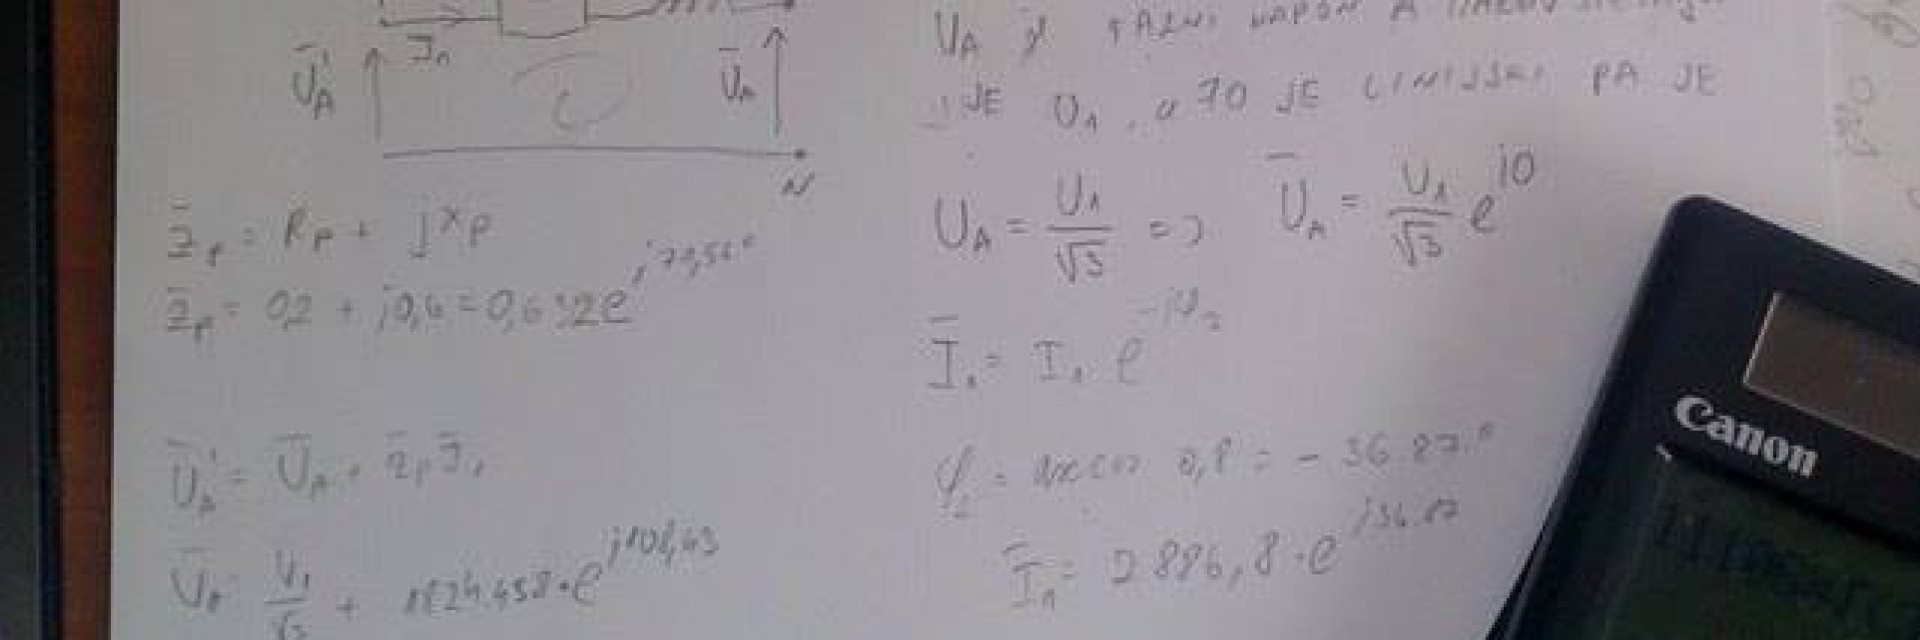 Ū'A
Ī1
ŪA
N
z̄p = Rp + jxp
z̄p = 0,2 + j0,6 = 0,632 e^j71,56°
Ū'A = ŪA + z̄p Ī1
U1/√3 + 1824.458 · e^j108,43
UA
NAPON A
JE U1, a 70 JE LINIJSKI PA JE
UA = U1/√3 => ŪA = U1/√3 e^j0
Ī1 = I1 e^-jφ2
φ2 = arccos 0,8 = - 36 87°
Ī1 = 2886,8 · e^j36.87
Canon